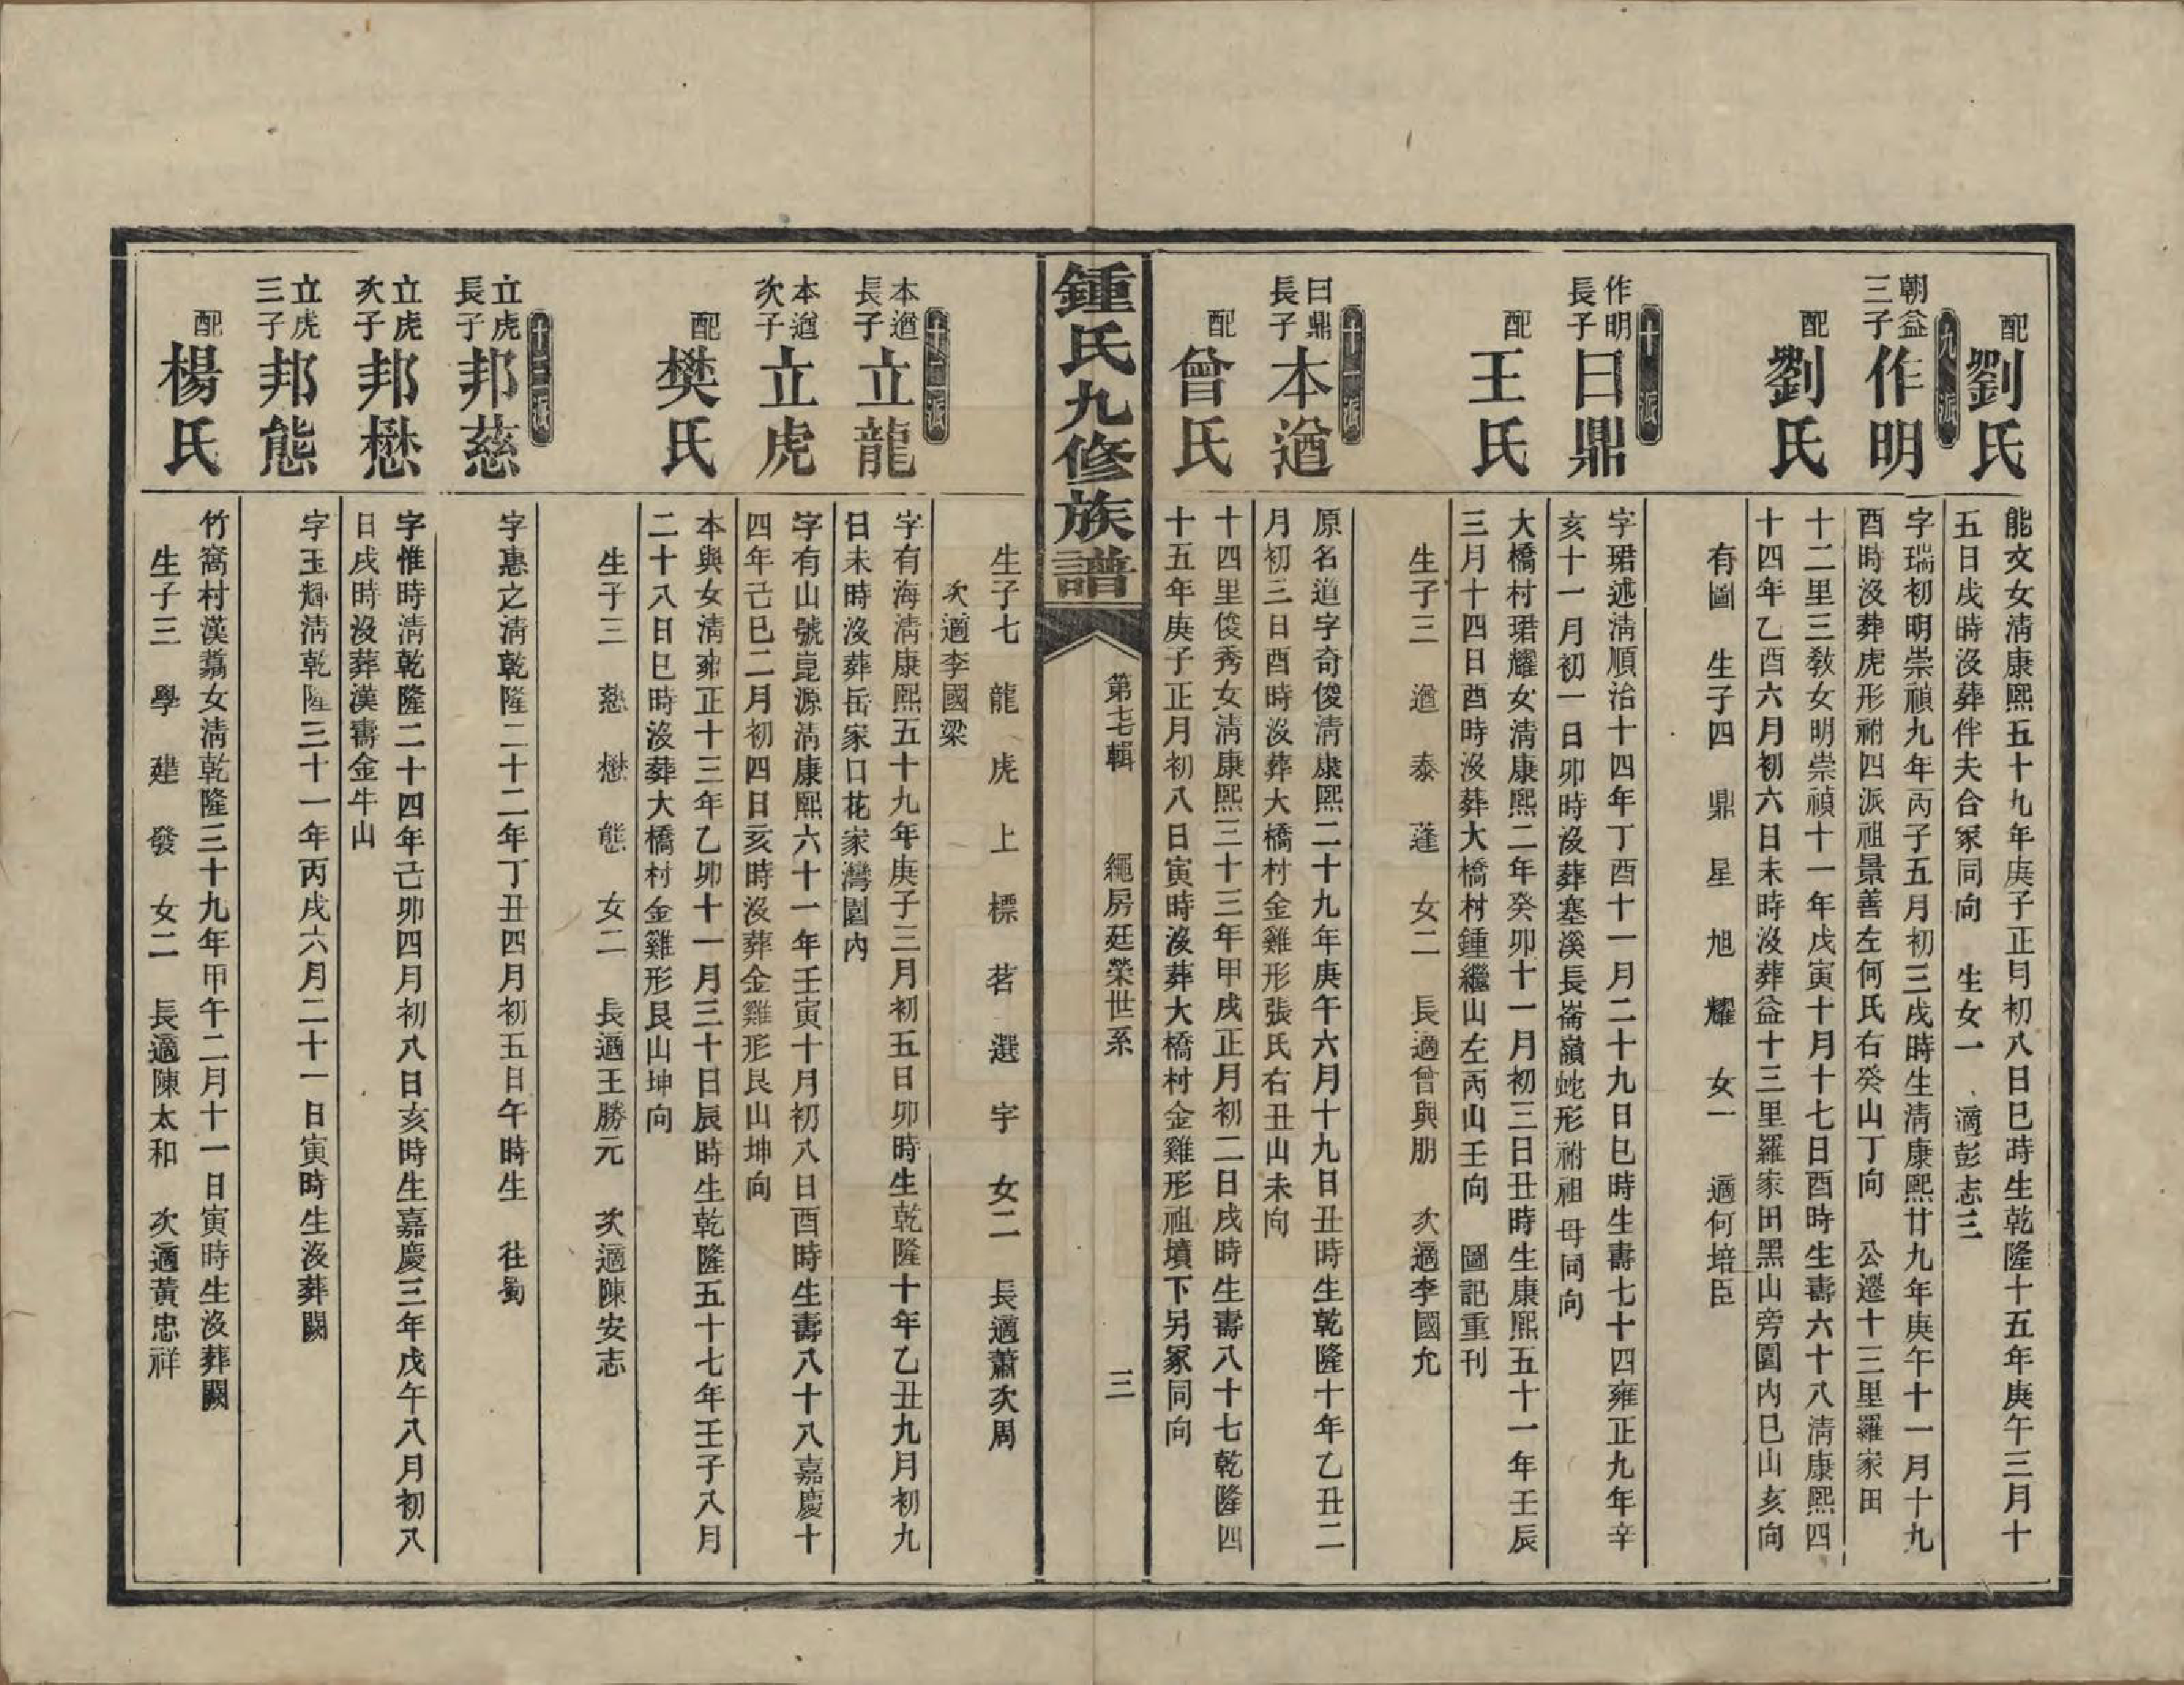 配
劉氏
能文女淸康熙五十九年庚子正月初八日巳時生乾隆十五年庚午三月十
五日戌時沒葬伴夫合冢同向　生女一　適彭志三
九派
朝益
三子
作明
字瑞初明崇禎九年丙子五月初三戌時生淸康熙廿九年庚午十一月十九
酉時沒葬虎形祔四派祖景善左何氏右癸山丁向　公遷十三里羅家田
配
劉氏
十二里三敎女明崇禎十一年戊寅十月十七日酉時生壽六十八淸康熙四
十四年乙酉六月初六日未時沒葬益十三里羅家田黑山旁園内巳山亥向
有圖　生子四　鼎　星　旭　耀　女一　適何培臣
十派
作明
長子
曰鼎
字珺述淸順治十四年丁酉十一月二十九日巳時生壽七十四雍正九年辛
亥十一月初一日卯時沒葬塞溪長崙嶺蛇形祔祖母同向
配
王氏
大橋村珺耀女淸康熙二年癸卯十一月初三日丑時生康熙五十一年壬辰
三月十四日酉時沒葬大橋村鍾繼山左丙山壬向　圖記重刊
生子三　遒　泰　蓬　女二　長適曾與朋　次適李國允
十一派
曰鼎
長子
本遒
原名道字奇俊淸康熙二十九年庚午六月十九日丑時生乾隆十年乙丑二
月初三日酉時沒葬大橋村金雞形張氏右丑山未向
配
曾氏
十四里俊秀女淸康熙三十三年甲戌正月初二日戌時生壽八十七乾隆四
十五年庚子正月初八日寅時沒葬大橋村金雞形祖墳下另冢同向
鍾氏九修族譜
第七輯
繩房廷榮世系
三
生子七　龍　虎　上　標　茗　選　宇　女二　長適蕭次周
次適李國梁
十二派
本遒
長子
立龍
字有海淸康熙五十九年庚子三月初五日卯時生乾隆十年乙丑九月初九
日未時沒葬岳家口花家灣園内
本遒
次子
立虎
字有山號崑源淸康熙六十一年壬寅十月初八日酉時生壽八十八嘉慶十
四年己巳二月初四日亥時沒葬金雞形艮山坤向
配
樊氏
本與女淸雍正十三年乙卯十一月三十日辰時生乾隆五十七年壬子八月
二十八日巳時沒葬大橋村金雞形艮山坤向
生子三　慈　懋　態　女二　長適王勝元　次適陳安志
十三派
立虎
長子
邦慈
字惠之淸乾隆二十二年丁丑四月初五日午時生　往蜀
立虎
次子
邦懋
字惟時淸乾隆二十四年己卯四月初八日亥時生嘉慶三年戊午八月初八
日戌時沒葬漢壽金牛山
立虎
三子
邦態
字玉輝淸乾隆三十一年丙戌六月二十一日寅時生沒葬闕
配
楊氏
竹窩村漢翥女淸乾隆三十九年甲午二月十一日寅時生沒葬闕
生子三　學　建　發　女二　長適陳太和　次適黃忠祥